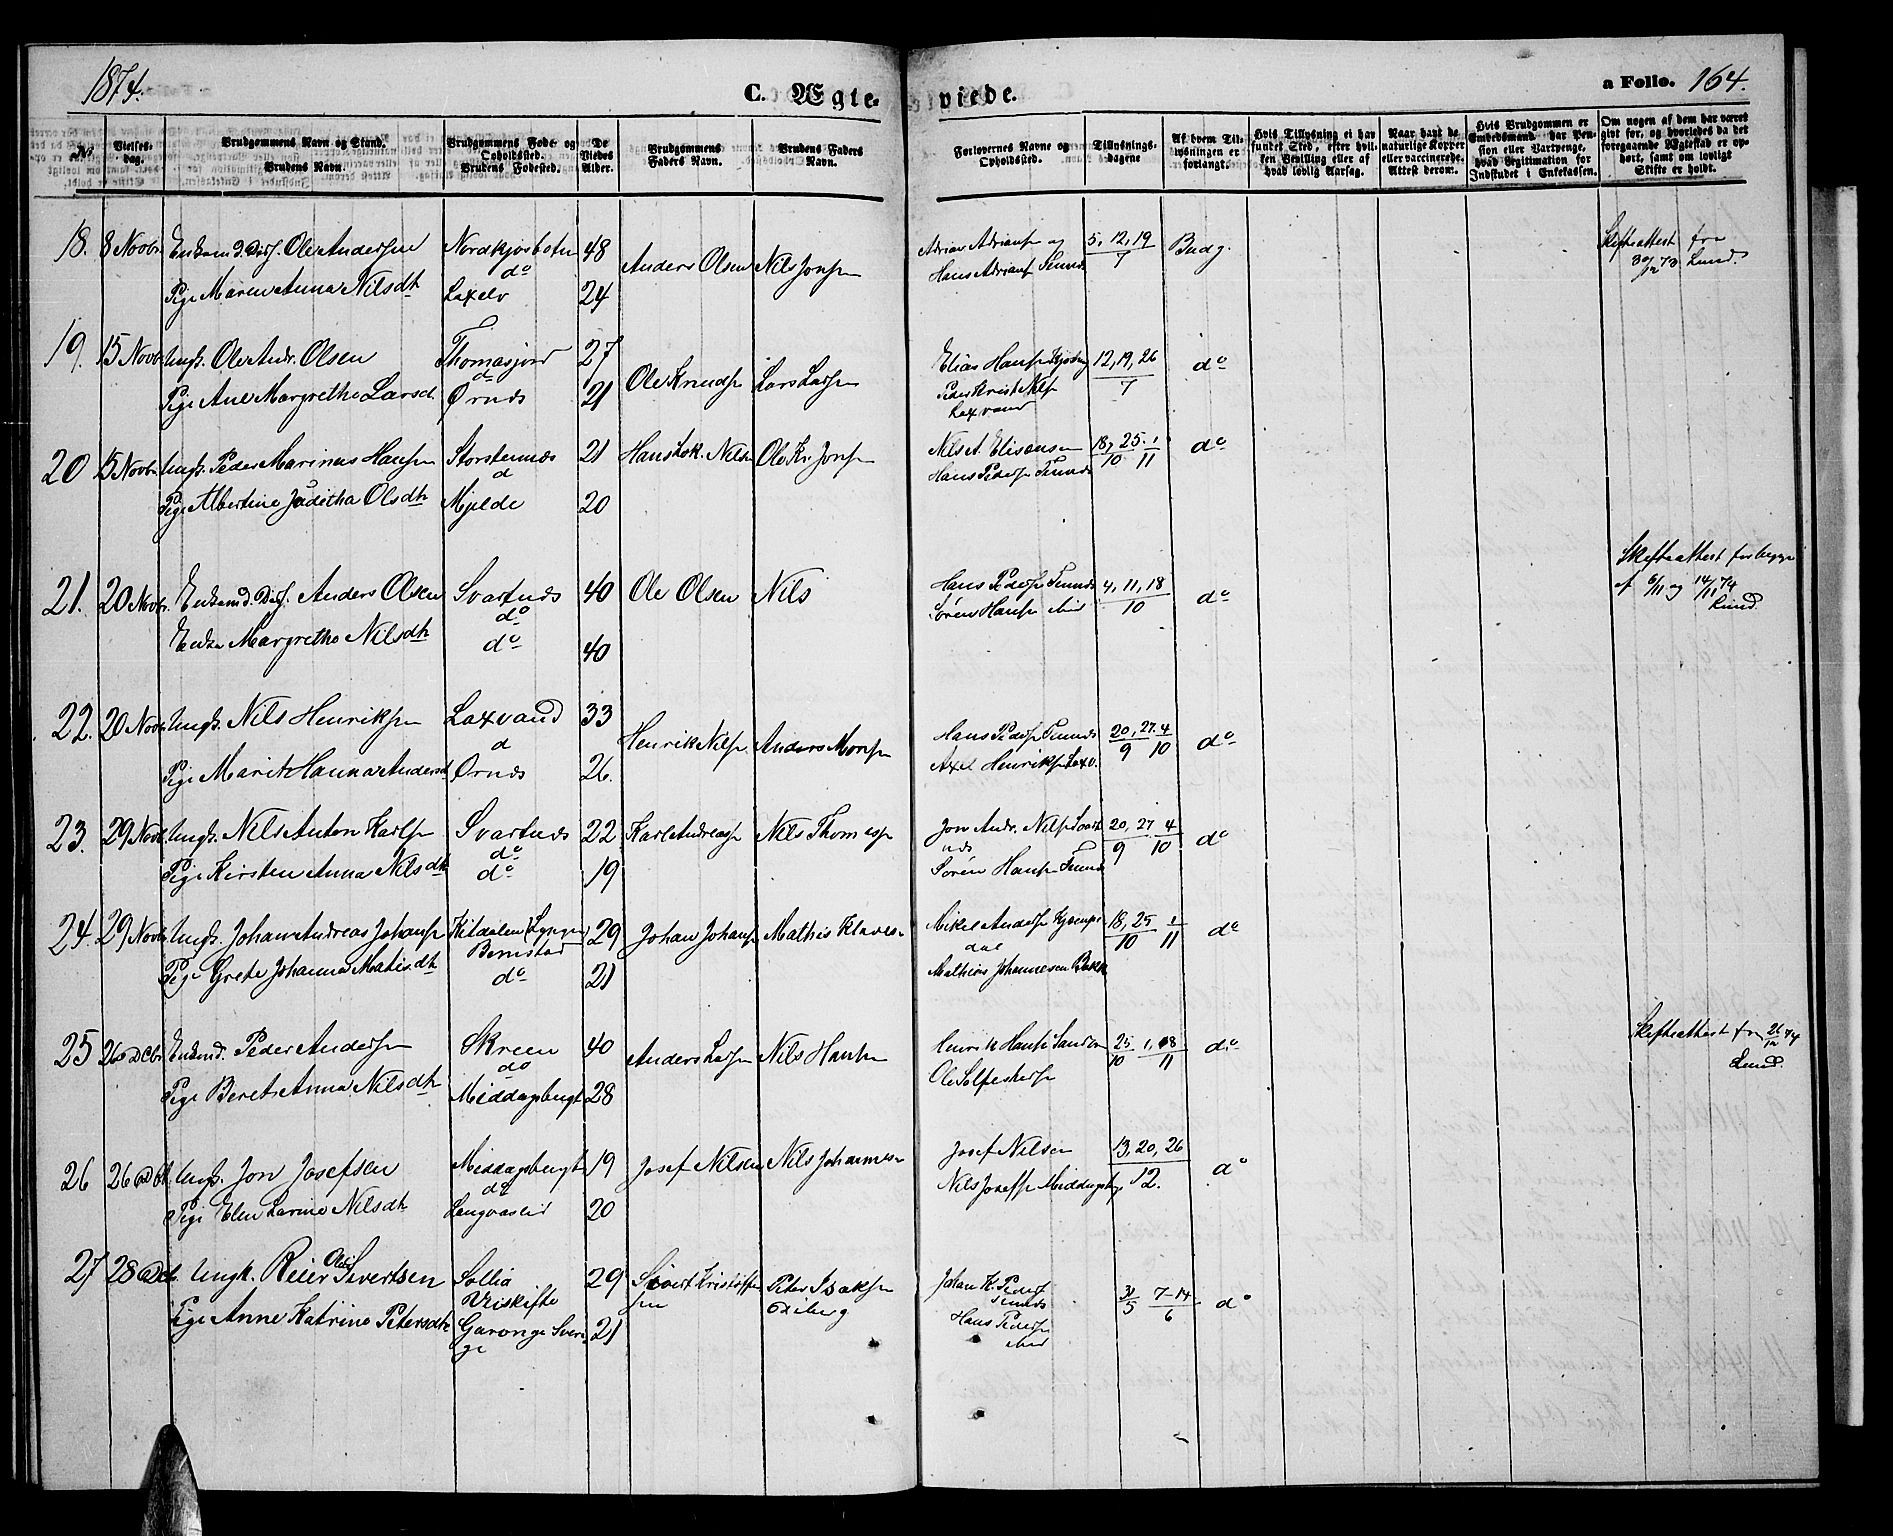 1874.
C. Ægte-
viede.
a Folio. 164.
№
Vielses-
dag.
Brudgommens Navn og Stand.
Brudens Navn.
Brudgommens Føde- og
Opholdssted.
Brudens Fødested.
De
Viedes
Alder.
Brudgommens
Faders Navn.
Brudens Faders
Navn.
Forlovernes Navne og
Opholdssted.
Tillysnings-
dagene
Af hvem Til-
lysningen er
forlangt.
Hvis Tillysning ei har
fundet Sted, efter hvil-
ken Bevilling eller af
hvad lovlig Aarsag.
Naar havt de
naturlige Kopper
eller vaccinerede.
Attest derom.
Hvis Brudgommen er
Embedsmand, har Pen-
sion eller Vartpenge,
hvad Legitimation for
Indskudet i Enkekassen.
Om nogen af dem har været
givt før, og hvorledes da det
foregaaende Ægteskab er op-
hørt, samt om lovligt
Skifte er holdt.
18. 8 Novbr Enkem. Ole Andersen Nordkjosbotn 48 Anders Olsen Nils Jonsen Adrian Adriansen og 5, 12, 19 Budg. Skifteattest fra
do Hans Adriansen 7 30/12 73 Lund.
Pige Maren Anna Nilsdtr Laxelv 24
19. 15 Novbr Ungk. Ole Andr. Olsen Thomasjord 27 Ole Knudsen Lars Larsen Elias Hansen 12, 19, 26 do
do Peder Krist Nilsen 7
Pige Ane Margrethe Larsd. Ørnæs 21 Laxvand
20 15 Novbr Ungk. Peder Marinus Hansen Storstennæs 21 Hans Nilsen Ole Kr. Jonsen Nils A. Elisæusen 18, 25. 1 do
d Hans Pedersen 10 11
Pige Albertine Juditha Olsdtr Mjelde 20
Skifteattest for begge
21. 20 Novbr. Enkemd. Anders Olsen Svartnæs 40 Ole Olsen Nils Hans Pedersen 4, 11, 18 do af 6/11 og 14/11 74
do Søren Hansen ibid 10 Lund.
Enke Margrethe Nilsdtr do 40
22. 20 Novbr. Ungk. Nils Henriksen Laxvand 33 Henrik Nilsen Anders Monsen Hans Pedersen 20, 27. 4 do
d Axel Henriksen Laxv. 9 10
Pige Marit Hanna Andersd. Ørnæs 26.
23. 29 Novbr Ungk. Nils Anton Karlsen Svartnæs 22 Karl Andreassen Nils Thomassen Jon Andr. Nilsen Svart 20, 27 4 do
do næs 9 10
Pige Kirsten Anna Nilsdtr do 19 Søren Hansen
24. 29 Novbr Ungk. Johan Andreas Johansen Kitdalen (Lyngen) 29 Johan Johansen Mathis Klavesen Mikel Andersen 18, 25 1 do
dal 10 11
Pige Grete Johanna Matisdtr do 21 Mathias Johannesen
25 26 Dcbr Enkemd. Peder Andersen Skreen 40 Anders Larsen Nils Hansen Henrik Hansen 25 1, 8 do Skifteattest fra 21/12 74
do Ole 10 11 Lund.
Pige Beret Anna Nilsdtr Middagsbugt 28
26 26 Dcbr. Ungk. Jon Josefsen Middagsbugt 19 Josef Nilsen Nils Johannesen Josef Nilsen 13, 20, 26 do
do Nils Josefsen Middagsbugt 12.
Pige Elen Larine Nilsdtr Lengvaseid 20
27 28 Dcbr. Ungk. Reier Olai Sivertsen Sollia 29 Sivert Kristoffer Peter Isaksen Johan K. Peders 31/5 7-14/6 do
sen
Pige Anne Katrine Petersdtr 21 Hans Pedersen
ibid